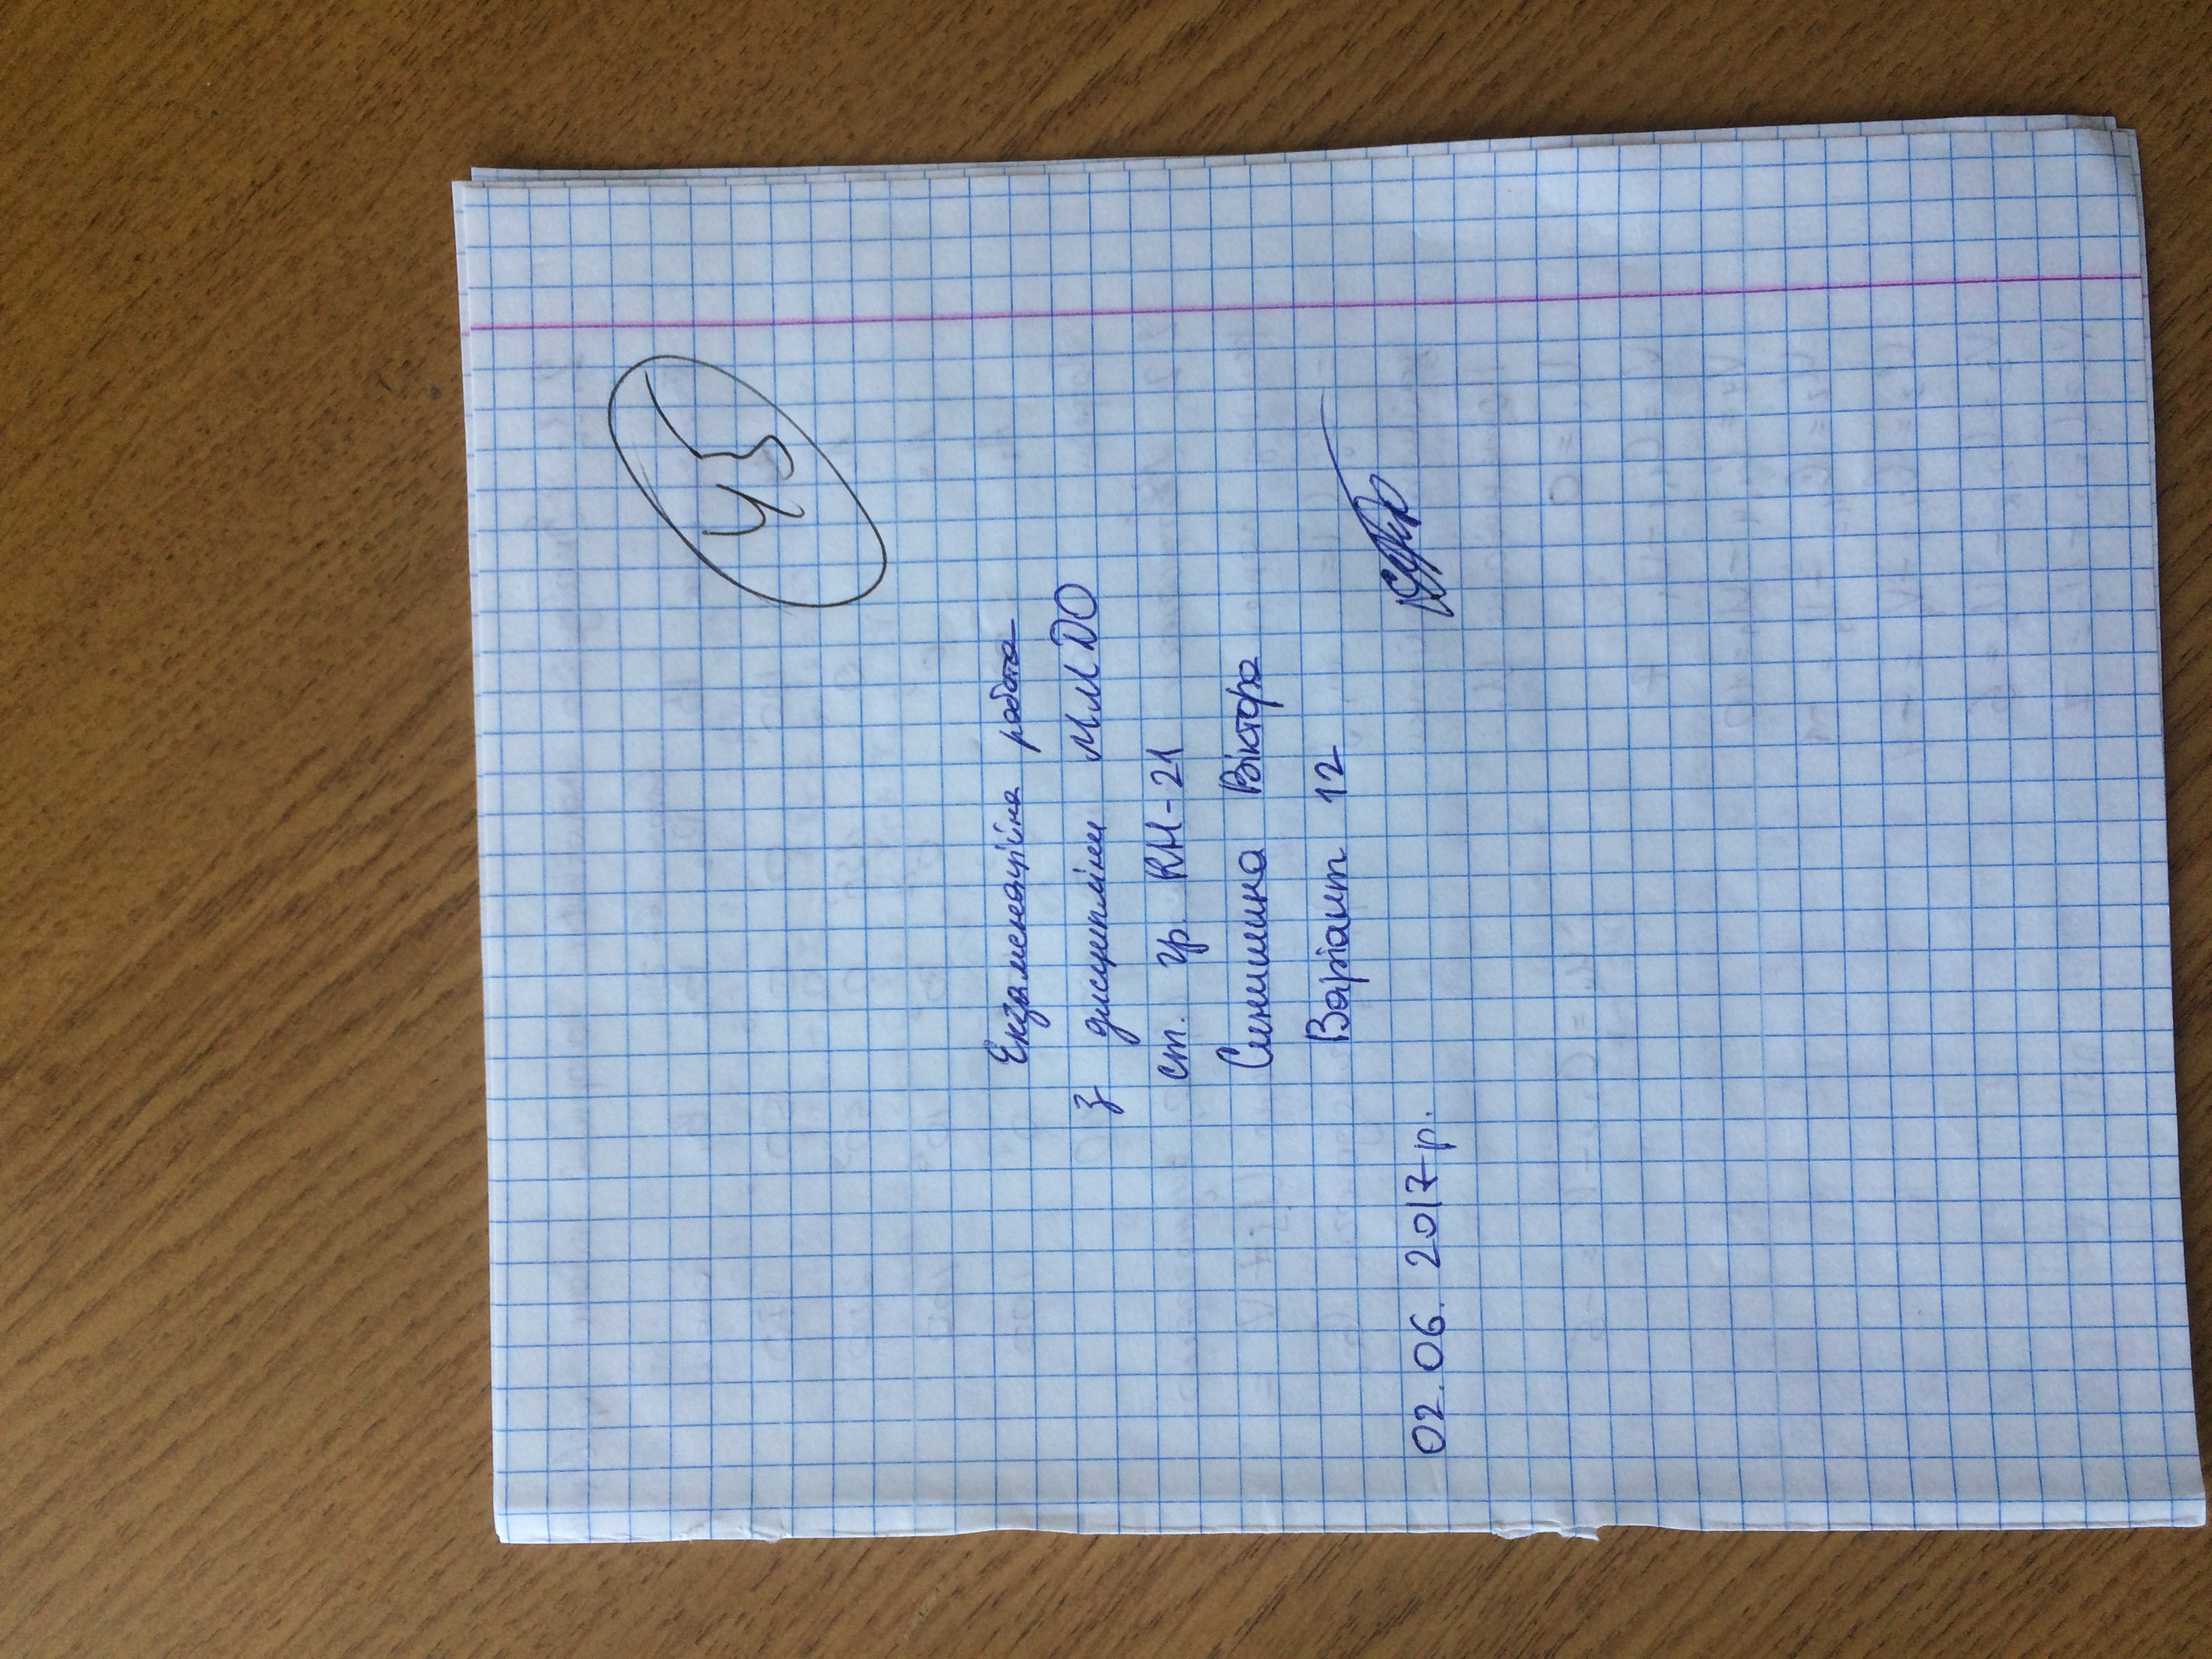 45
Екзаменаційна робота
з дисципліни ММДО
ст. гр. КН-21
Синишина Віктора
Варіант 12
02.06.2017р.